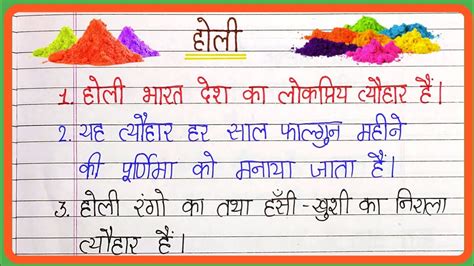 होली
1. होली भारत देश का लोकप्रिय त्यौहार हैं।
2. यह त्यौहार हर साल फाल्गुन महीने
की पूर्णिमा को मनाया जाता हैं।
3. होली रंगो का तथा हँसी-खुशी का निराला
त्यौहार हैं।